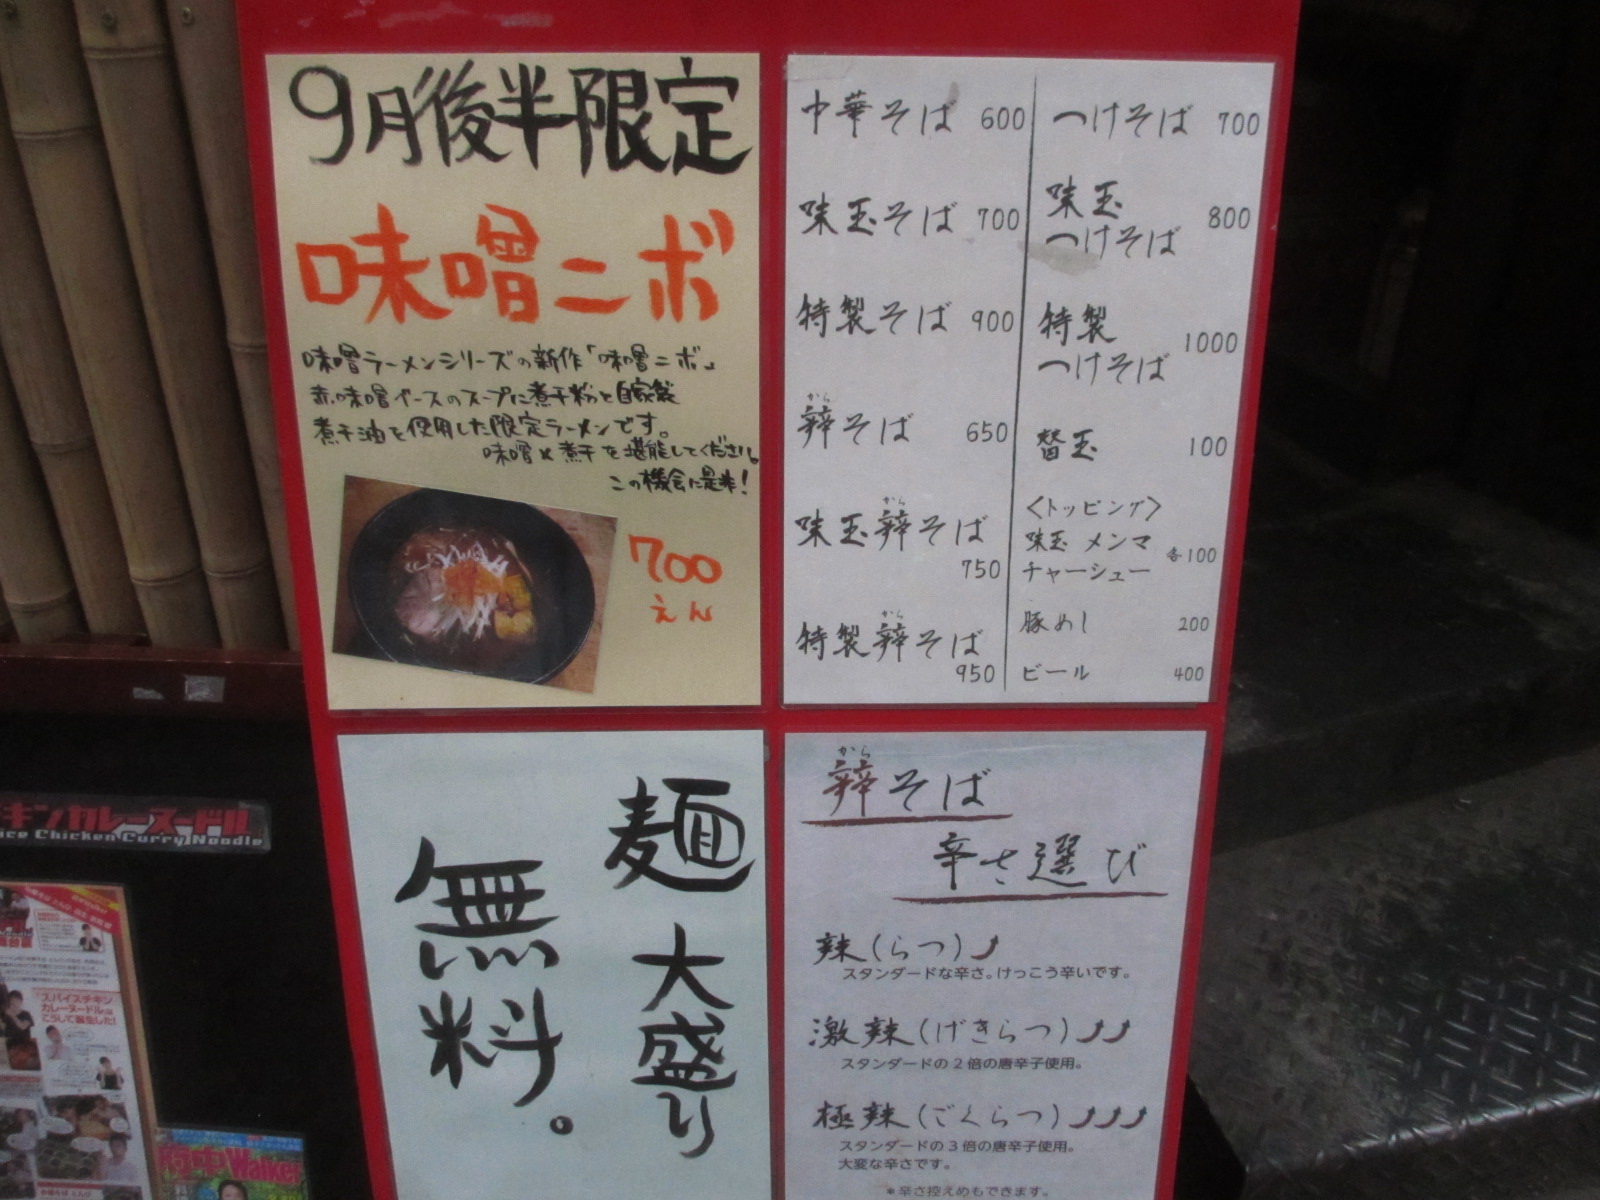 9月後半限定
味噌ニボ
味噌ラーメンシリーズの新作「味噌ニボ」
赤味噌ベースのスープに煮干粉と自家製
煮干油を使用した限定ラーメンです。
味噌×煮干を堪能してください。
この機会に是非!
700
えん
中華そば 600
味玉そば 700
特製そば 900
から
辛辛そば 650
から
味玉辛辛そば
750
から
特製辛辛そば
950
つけそば 700
味玉
つけそば 800
特製
つけそば 1000
替玉 100
<トッピング>
味玉 メンマ
チャーシュー 各100
豚めし 200
ビール 400
麺大盛り
無料。
から
辛辛そば
辛さ選び
辣(らつ)
スタンダードな辛さ。けっこう辛いです。
激辣(げきらつ)
スタンダードの2倍の唐辛子使用。
極辣(ごくらつ)
スタンダードの3倍の唐辛子使用。
大変な辛さです。
*辛さ控えめもできます。
キンカレーヌードル
ice Chicken Curry Noodle
スパイスチキン
カレーヌードルは
こうして誕生した!
Walker